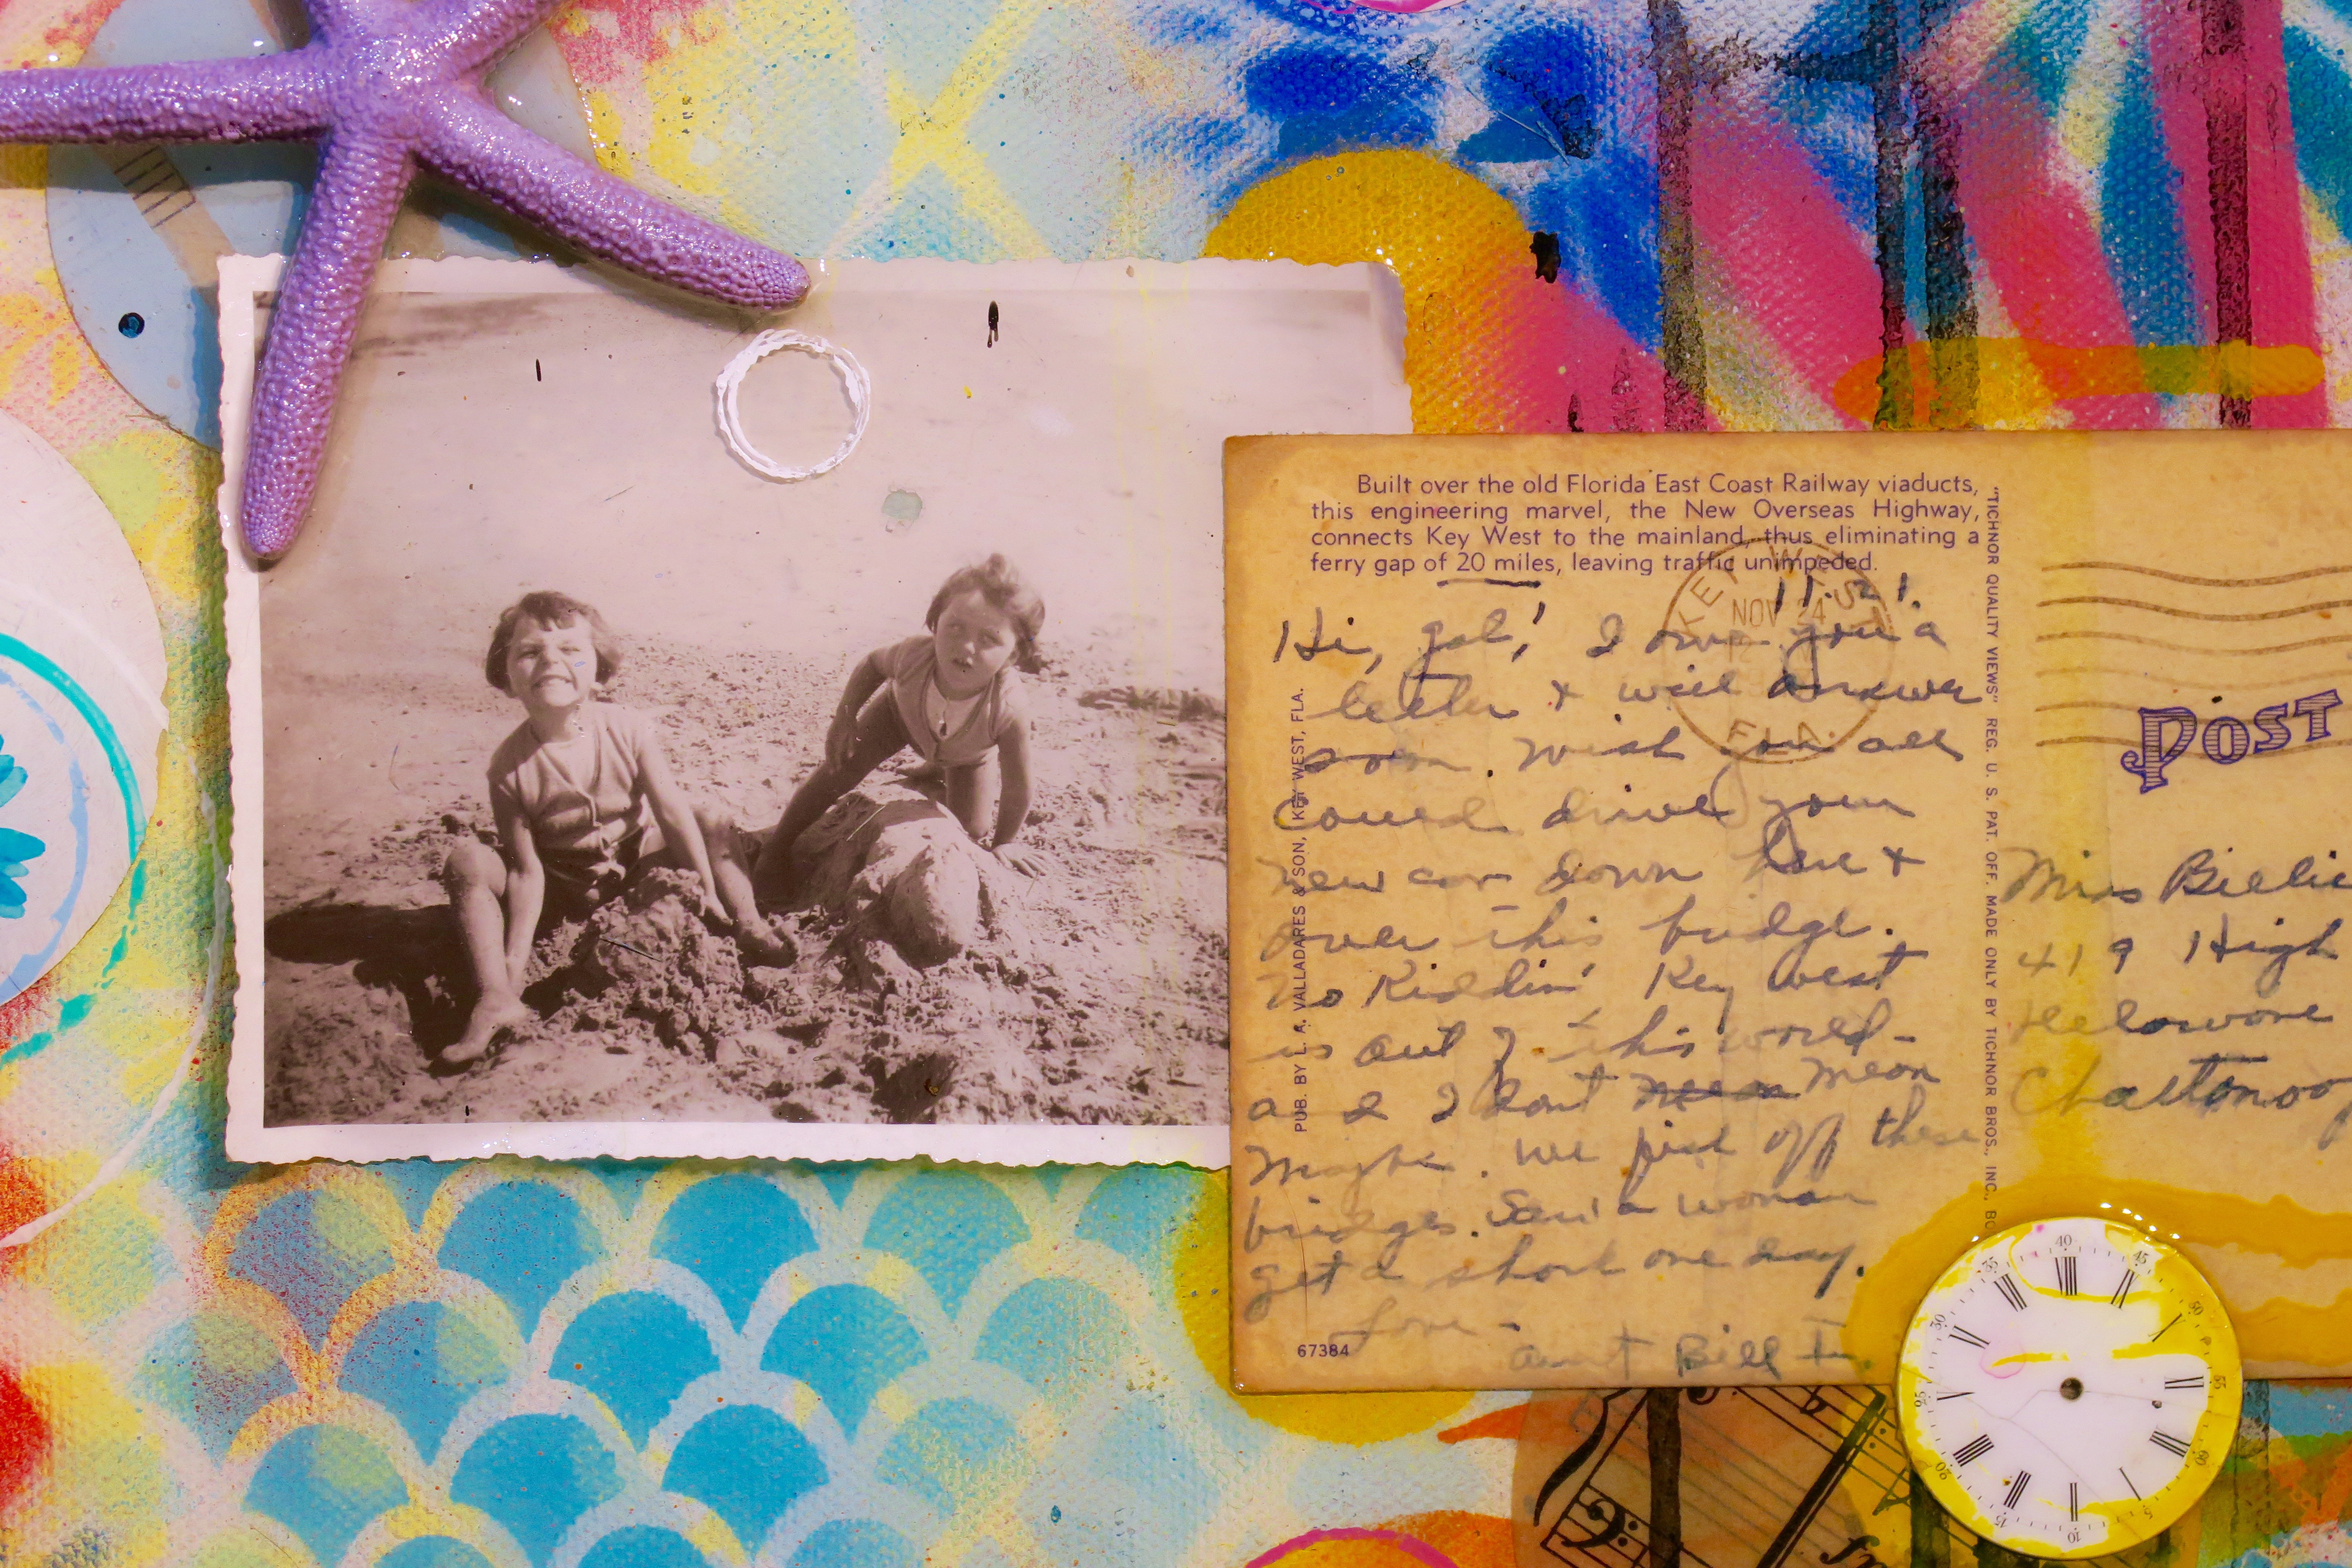 Built over the old Florida East Coast Railway viaducts,
this engineering marvel, the New Overseas Highway,
connects Key West to the mainland, thus eliminating a
ferry gap of 20 miles, leaving traffic unimpeded.
KEY WEST
NOV 24
FLA.
Hi, gal! I owe you a
letter & will answer
soon. Wish you all
could drive your
new car down here &
over this bridge.
No Kiddin' Key West
is out of this world -
and I dont mean
Maybe. We fish off these
bridges. Saw a woman
get a shark one day.
Love -
Aunt Bill
67384
PUB. BY L. A. VALLADARES & SON, KEY WEST, FLA.
"TICHNOR QUALITY VIEWS" REG. U. S. PAT. OFF. MADE ONLY BY TICHNOR BROS., INC., BO
POST
Miss Billie
419 High
Delaware
Chattanoog
35 40 45 50 55 60 5 10 15 20 25 30